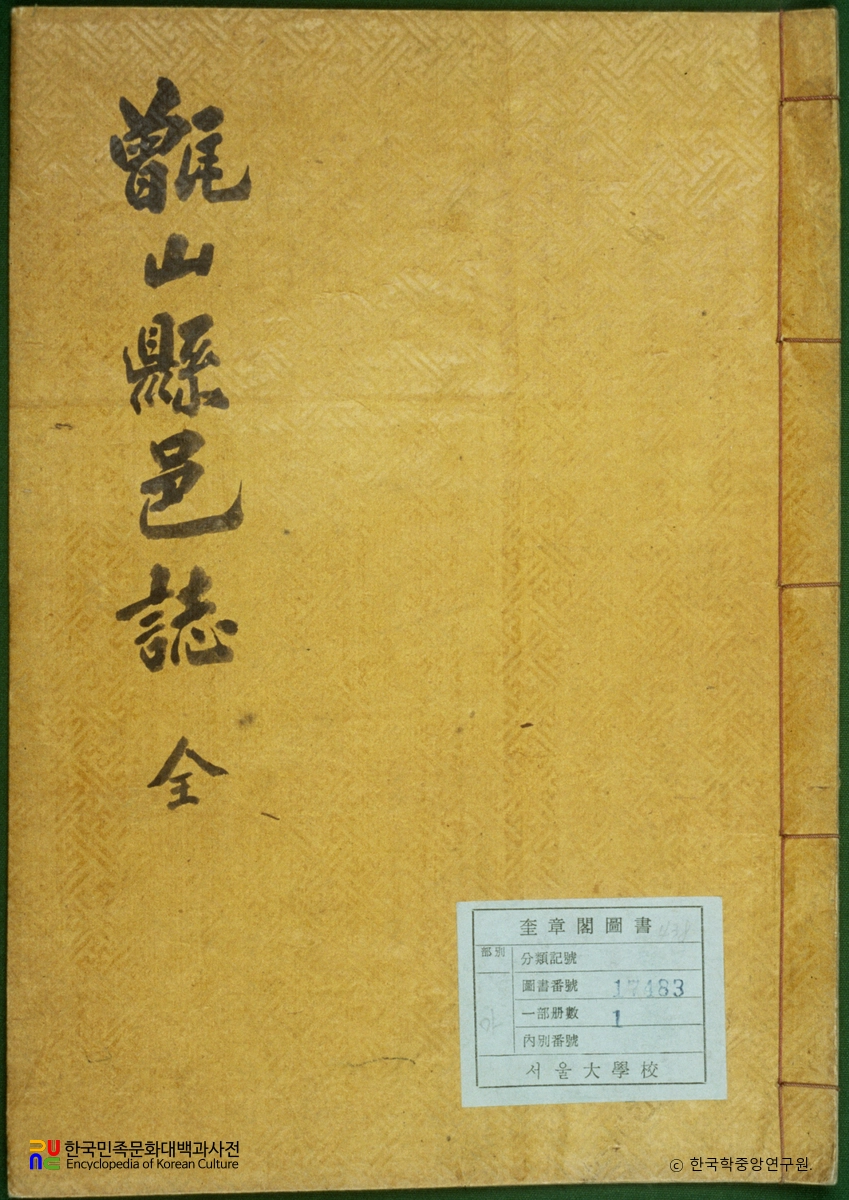 甑山縣邑誌 全
奎章閣圖書
部別
分類記號
圖書番號 17483
一部册數 1
內別番號
서울大學校
한국민족문화대백과사전
Encyclopedia of Korean Culture
© 한국학중앙연구원.